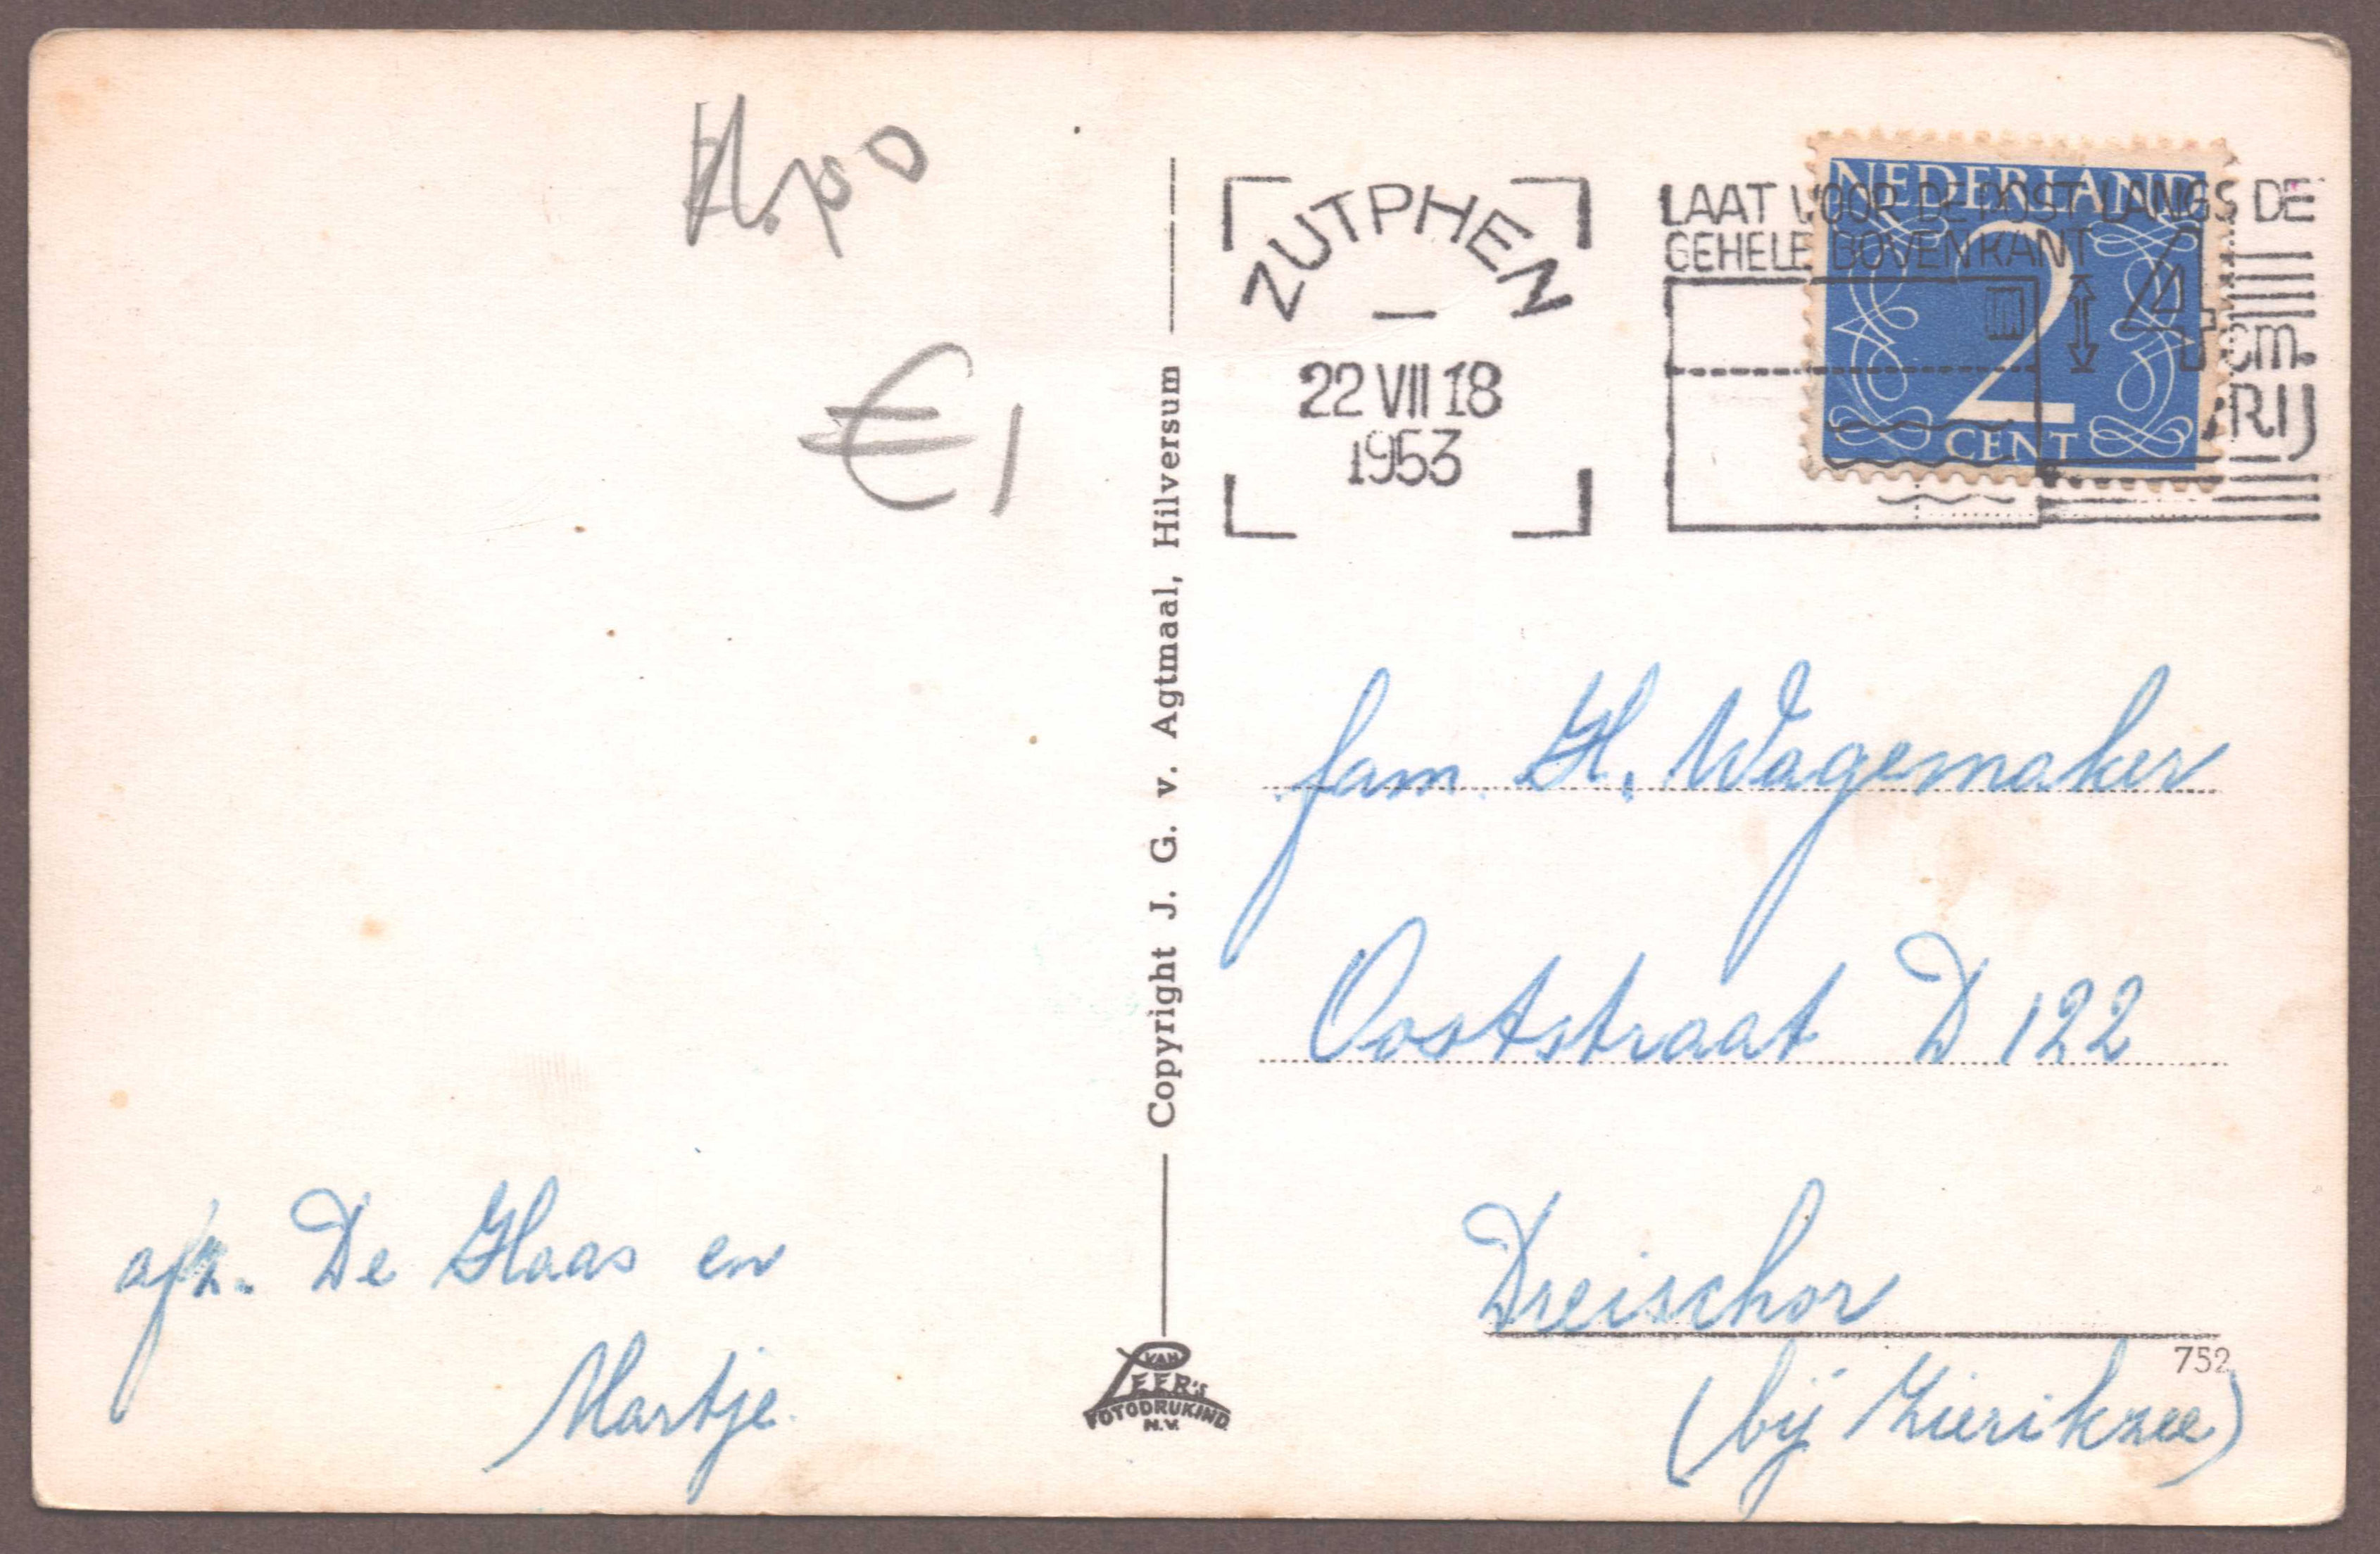 €1
ZUTPHEN
22 VII 18
1953
LAAT VOOR DE POST LANGS DE
GEHELE BOVENKANT
4
cm.
VRIJ
NEDERLAND
2
CENT
Copyright J. G. v. Agtmaal, Hilversum
fam. H. Wagemaker
Ooststraat D 122
Dreischor
752
(bij Zierikzee)
afz. De Haas en
Martje.
VAN
LEER'S
FOTODRUKIND.
N.V.